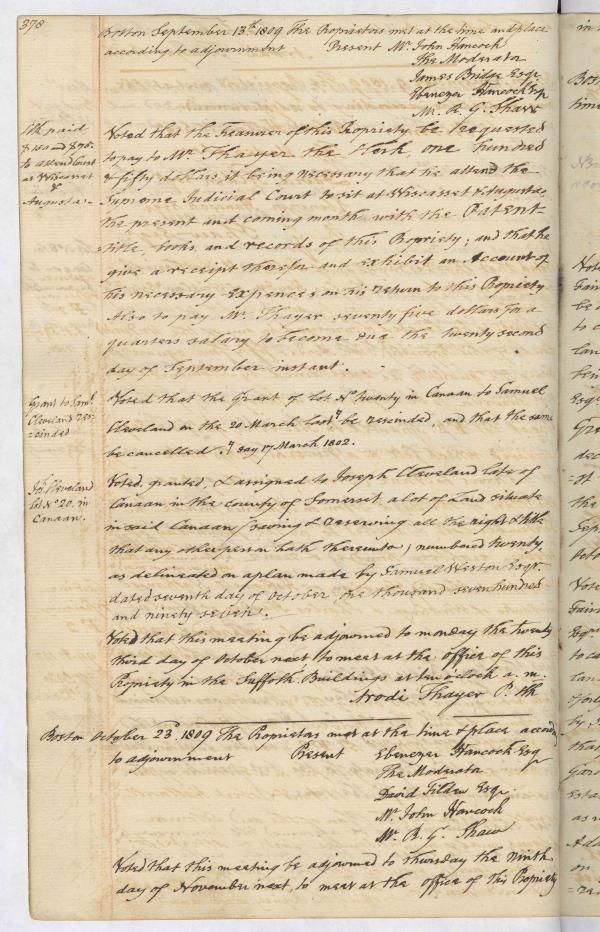 378
Boston September 13th. 1809 The Proprietors met at the time and place
according to adjournment Present Mr. John Hancock
The Moderator
James Bridge Esqr
Ebenezer Hancock Esq
Mr. R. G. Shaw
Clk paid
$150 and $75.
to attend Court
at Wiscasset
&
Augusta.
Voted that the Treasurer of this Propriety be requested
to pay to Mr. Thayer the Clerk, one hundred
& fifty dollars, it being necessary that he attend the
Supreme Judicial Court to sit at Wiscasset & Augusta
the present and coming month, with the Patent-
title, books, and records of this Propriety; and that he
give a receipt therefor and exhibit an Account of
his necessary Expences on his return to this Propriety
Also to pay Mr. Thayer seventy five dollars for a
quarters salary to become due the twenty second
day of September instant.
Grant to Saml.
Cleveland res-
=cinded
Voted that the Grant of lot No twenty in Canaan to Samuel
Cleveland on the 20 March last be rescinded, and that the same
be cancelled. say 17 March 1802.
Jos. Cleveland
lot No 20. in
Canaan.
Voted, granted, & assigned to Joseph Cleveland late of
Canaan in the county of Somerset a lot of Land situate
in said Canaan (saving & reserving all the right & title
that any other person hath thereunto) numbered twenty,
as delineated on a plan made by Samuel Weston Esqr.
dated seventh day of October, one thousand seven hundred
and ninety seven.
Voted that this meeting be adjourned to monday the twenty
third day of October next, to meet at the office of this
Propriety in the Suffolk Buildings at ten o'clock a. m.
Arodi Thayer P. Clk
Boston October 23d. 1809 The Proprietors met at the time & place accordg
to adjournment Present Ebenezer Hancock Esq
The Moderator
David Tilden Esqr.
Mr. John Hancock
Mr. R. G. Shaw
Voted that this meeting be adjourned to Thursday the Ninth
day of November next, to meet at the office of this Propriety